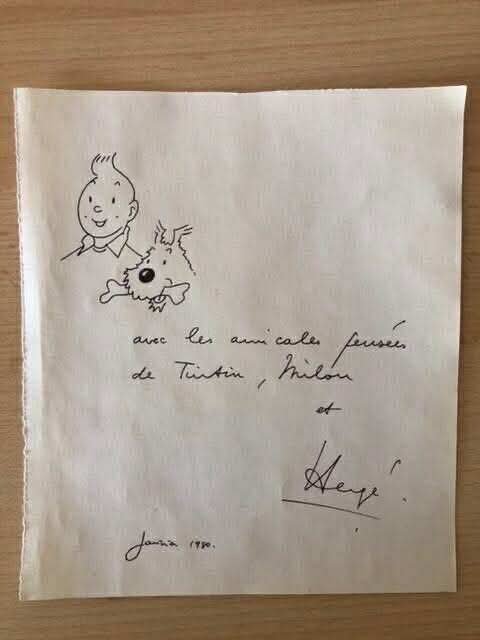 avec les amicales pensées
de Tintin, Milou
et
Hergé.
Janvier 1980.